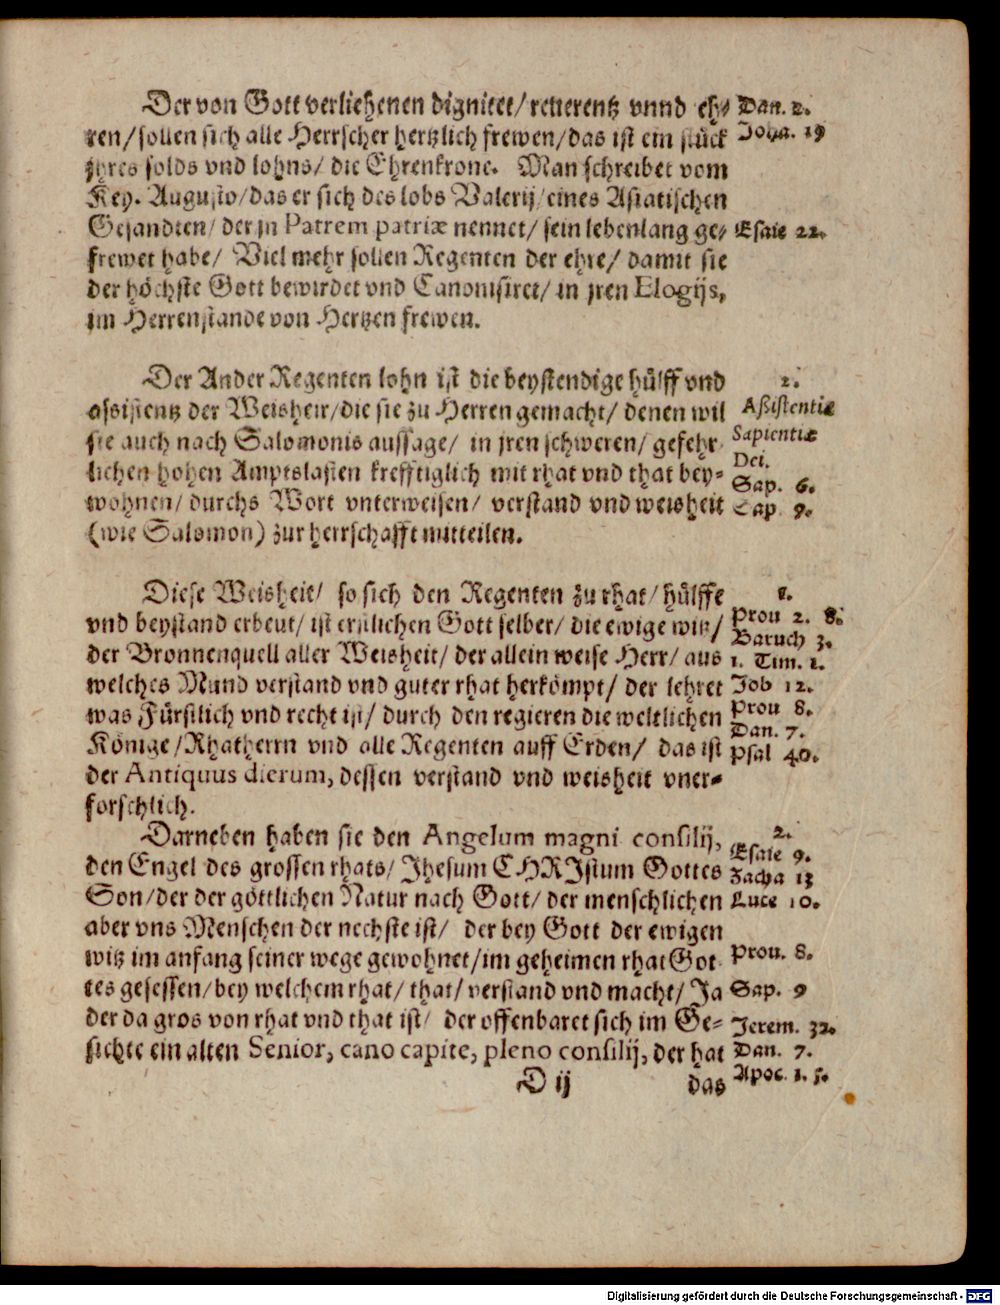 Der von Gott verliehenen dignitet/ reuerentz vnnd eh⸗ Dan. 2.
ren/ sollen sich alle Herrscher hertzlich frewen/ das ist ein stück Joha. 19
jhres solds vnd lohns/ die Ehrenkrone. Man schreibet vom
Key. Augusto/ das er sich des lobs Valerij/ eines Asiatischen
Gesandten/ der jn Patrem patriæ nennet/ sein lebenlang ge⸗ Esaie 22.
frewet habe/ Viel mehr sollen Regenten der ehre/ damit sie
der höchste Gott bewirdet vnd Canonisiret/ in jren Elogijs,
im Herrenstande von Hertzen frewen.
Der Ander Regenten lohn ist die beystendige hülff vnd 2.
assistentz der Weisheit/ die sie zu Herren gemacht/ denen wil Aßistentiæ
sie auch nach Salomonis aussage/ in jren schweren/ gefehr⸗ Sapientiæ
lichen hohen Amptslasten krefftiglich mit rhat vnd that bey⸗ Dei.
Sap. 6.
wohnen/ durchs Wort vnterweisen/ verstand vnd weisheit Cap. 9.
(wie Salomon) zur herrschafft mitteilen.
Diese Weisheit/ so sich den Regenten zu rhat/ hülffe 1.
vnd beystand erbeut/ ist erstlichen Gott selber/ die ewige witz/ Prou 2. 8.
Baruch 3.
der Bronnenquell aller Weisheit/ der allein weise Herr/ aus 1. Tim. 1.
welches Mund verstand vnd guter rhat herkömpt/ der lehret Job 12.
was Fürstlich vnd recht ist/ durch den regieren die weltlichen Prou 8.
Dan. 7.
Könige/ Rhatherrn vnd alle Regenten auff Erden/ das ist Psal 40.
der Antiquus dierum, dessen verstand vnd weisheit vner⸗
forschlich.
Darneben haben sie den Angelum magni consilij, 2.
den Engel des grossen rhats/ Jhesum CHRIstum Gottes Esaie 9.
Zacha 13
Son/ der der göttlichen Natur nach Gott/ der menschlichen Luce 10.
aber vns Menschen der nechste ist/ der bey Gott der ewigen
witz im anfang seiner wege gewohnet/ im geheimen rhat Got⸗ Prou. 8.
tes gesessen/ bey welchem rhat/ that/ verstand vnd macht/ Ja Sap. 9
der da gros von rhat vnd that ist/ der offenbaret sich im Ge⸗ Jerem. 32.
sichte ein alten Senior, cano capite, pleno consilij, der hat Dan. 7.
D ij das Apoc. 1. 5.
Digitalisierung gefördert durch die Deutsche Forschungsgemeinschaft - DFG